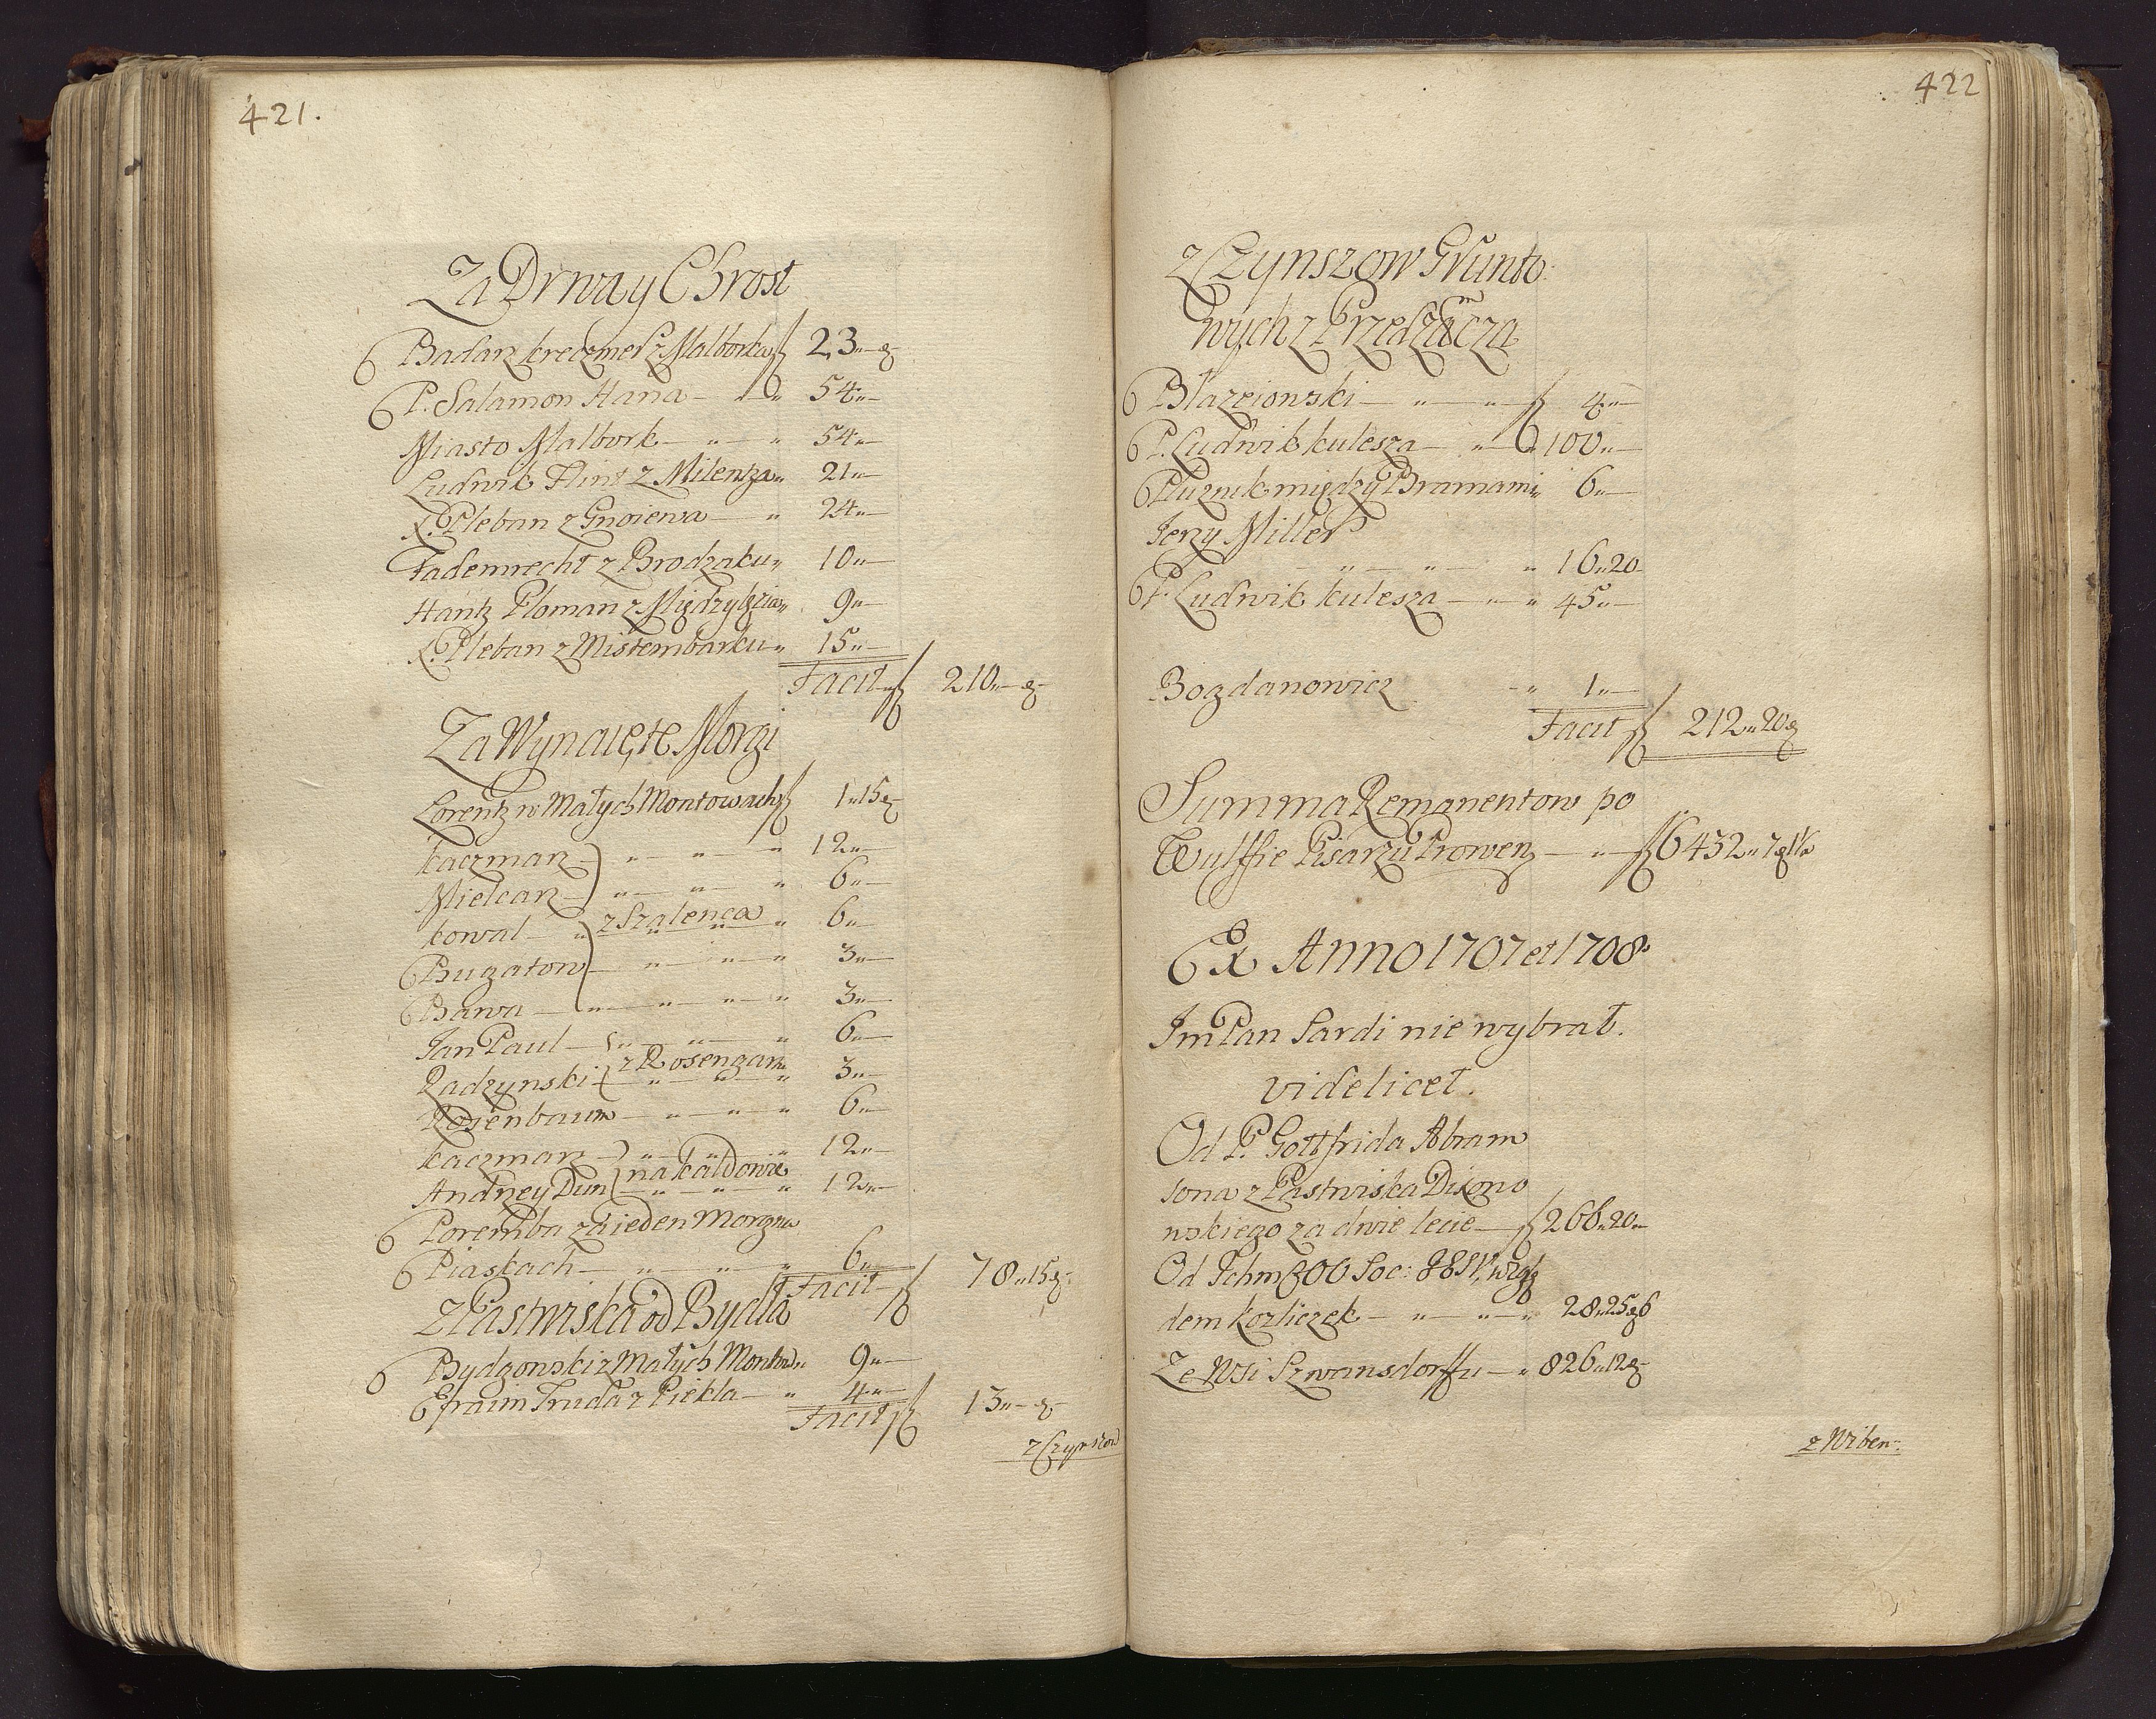 421.
Za Drwa y Chrost
Badarz kreczmerz z Malborku f 23„— g
P. Salamon Hana — „ — „ 54„—
Miasto Malbork — „ — „ 54„—
Ludwik Flint z Milenza „ 21„—
X. Pleban z Gnoiewa — „ 24„—
Fadenrecht z Brodzaku „ 10„—
Hantz Ploman z Międzyłęza „ 9„—
X. Pleban z Mistembarku „ 15„—
Facit f 210„— g
Za Wynaięte Morgi
Lorentz w Małych Montowach f 1„15 g
kaczmarz — „ — „ — „ 12„—
Mielcarz — „ — „ — „ 6„—
kowal — „ z Szalenca „ 6„—
Bugatow — „ — „ — „ 3„—
Bawa — „ — „ — „ — „ 3„—
Jan Paul — „ — „ — „ 6„—
Radzynski z Rosengartu „ 3„—
Rosenbaum — „ — „ — „ 6„—
kaczmarz — „ — „ — „ 12„—
Andrzey Dun na kaldowie „ 12„—
Poremba za ieden Morg na
Piaskach — „ — „ — „ 6„—
Facit f 78„15 g
z Pastwiska od Bydła
Bydgonski z Małych Montow „ 9„—
Efraim Truda z Piekla — „ 4„—
Facit f 13„— g
z Czynszow
422
z Czynszow Grunto
wych z Przedzamcza
Blazeionski — „ — „ f 4„—
P. Ludwik kulesza — „ — „ 100„—
Pluznik między Bramami „ 6„—
Jerzy Miller
— „ — „ — „ 16„20
P. Ludwik kulesza — „ — „ 45„—
Bogdanowicz — „ 1„—
Facit f 212„20 g
Summa Remanentow po
Wulffie Pisarzu Prowen — „ f 6432„7 g 1½
Ex Anno 1707 et 1708
Jm Pan Sardi nie wybrał.
videlicet.
Od P. Gottfrida Abram
sona z Pastwiska Dixono
wskiego za dwie lecie — f 266„20„
Od Ichm OO Soc: JESV, wzglę
dem kozliczek — „ — „ — „ 28„25 g 6
Ze Wsi Szwansdorffu — „ 826„12 g
z Niben.